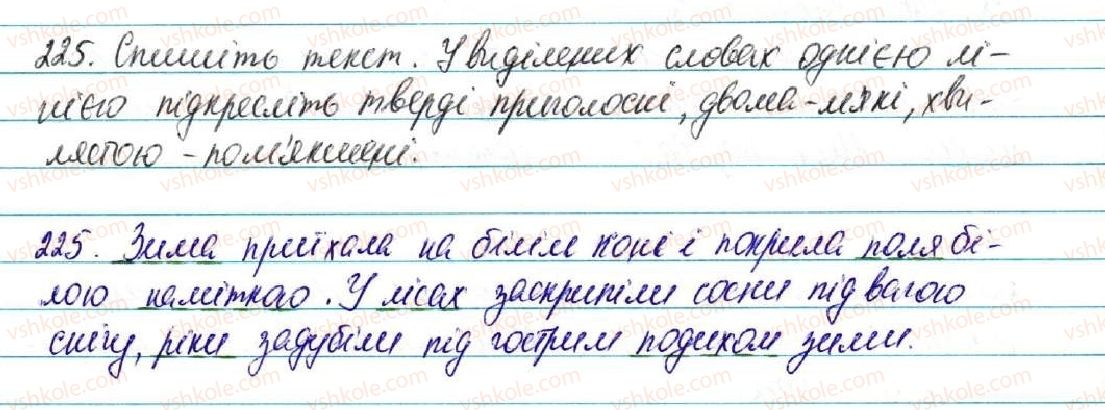 225. Спишіть текст. У виділених словах однією лі-
нією підкресліть тверді приголосні, двома - м'які, хви-
лястою - пом'якшені.
225. Зима приїхала на білім коні і покрила поля бі-
лою наміткою. У лісах заскрипіли сосни під вагою
снігу, ріки задубіли під гострим подихом зими.